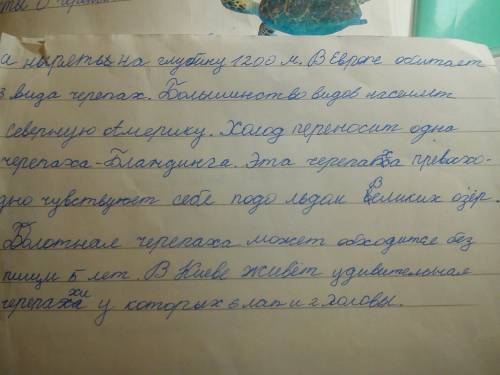 ты о череп
а нырять на глубину 1200 м. В Европе обитает
3 вида черепах. Большинство видов населяет
Северную Америку. Холод переносит одна
черепаха-Бландинга. Эта черепаха превосхо-
дно чувствует себе подо льдом Великих озёр.
Болотная черепаха может обходится без
пищи 5 лет. В Киеве живёт удивительная
черепахи у которых 6 лап и 2 головы.